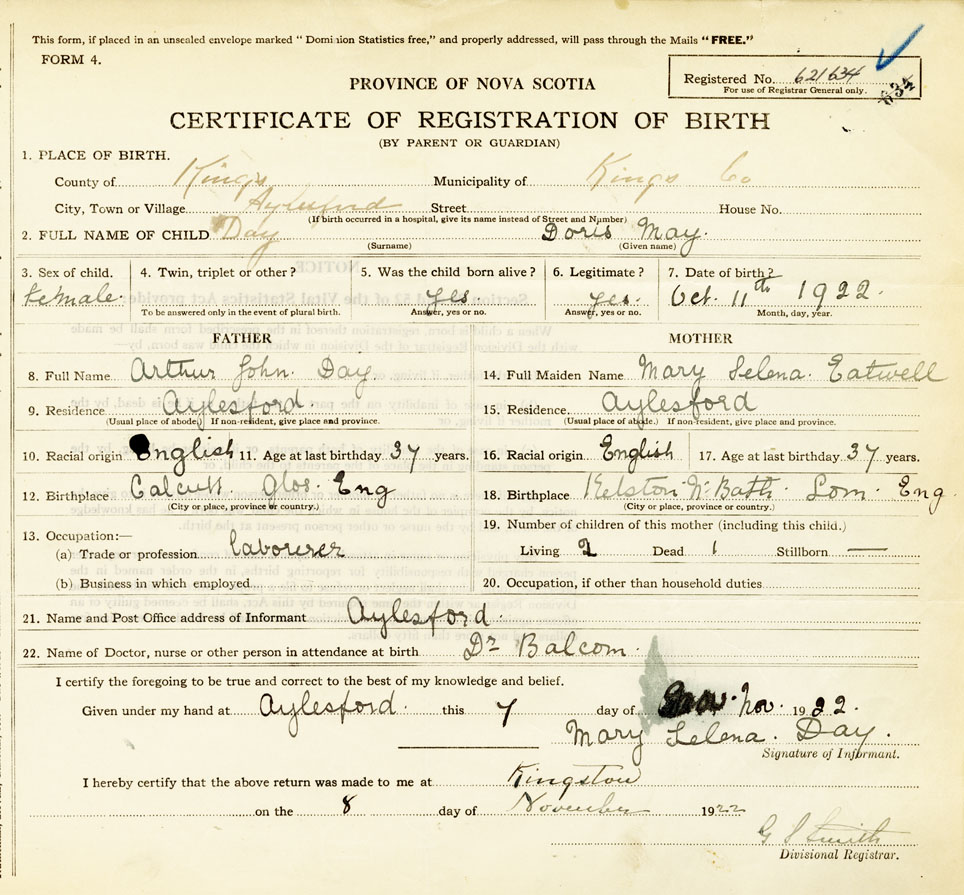 This form, if placed in an unsealed envelope marked "Dominion Statistics free," and properly addressed, will pass through the Mails "FREE."
FORM 4.
Registered No. 621634
For use of Registrar General only.
634
PROVINCE OF NOVA SCOTIA
CERTIFICATE OF REGISTRATION OF BIRTH
(BY PARENT OR GUARDIAN)
1. PLACE OF BIRTH.
County of Kings Municipality of Kings Co
City, Town or Village Aylesford Street House No.
(If birth occurred in a hospital, give its name instead of Street and Number)
2. FULL NAME OF CHILD Day Doris May.
(Surname) (Given name)
3. Sex of child. 4. Twin, triplet or other? 5. Was the child born alive? 6. Legitimate? 7. Date of birth?
female. yes. yes. Oct. 11th 1922.
To be answered only in the event of plural birth. Answer, yes or no. Answer, yes or no. Month, day, year.
FATHER MOTHER
8. Full Name Arthur John. Day. 14. Full Maiden Name Mary Selena. Eatwell
9. Residence Aylesford. 15. Residence. Aylesford
(Usual place of abode.) If non-resident, give place and province. (Usual place of abode.) If non-resident, give place and province.
10. Racial origin English 11. Age at last birthday 37 years. 16. Racial origin English 17. Age at last birthday 37 years.
12. Birthplace Glos. Eng 18. Birthplace Kelston Nr Bath. Som. Eng
(City or place, province or country.) (City or place, province or country.)
19. Number of children of this mother (including this child.)
13. Occupation:—
(a) Trade or profession laborerer Living 2 Dead 1 Stillborn —
(b) Business in which employed 20. Occupation, if other than household duties
21. Name and Post Office address of Informant Aylesford.
22. Name of Doctor, nurse or other person in attendance at birth Dr Balcom.
I certify the foregoing to be true and correct to the best of my knowledge and belief.
Given under my hand at Aylesford. this 7 day of Nov. 1922.
Mary Selena. Day.
Signature of Informant.
I hereby certify that the above return was made to me at Kingston
on the 8 day of November 1922
G S Smith
Divisional Registrar.